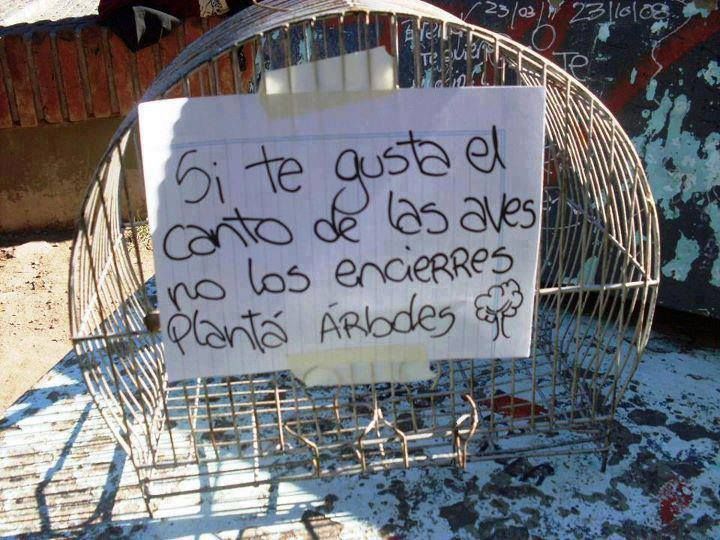 23/03/ 23/10/08
Te
Si te gusta el
canto de las aves
no los encierres
Plantá Árboles